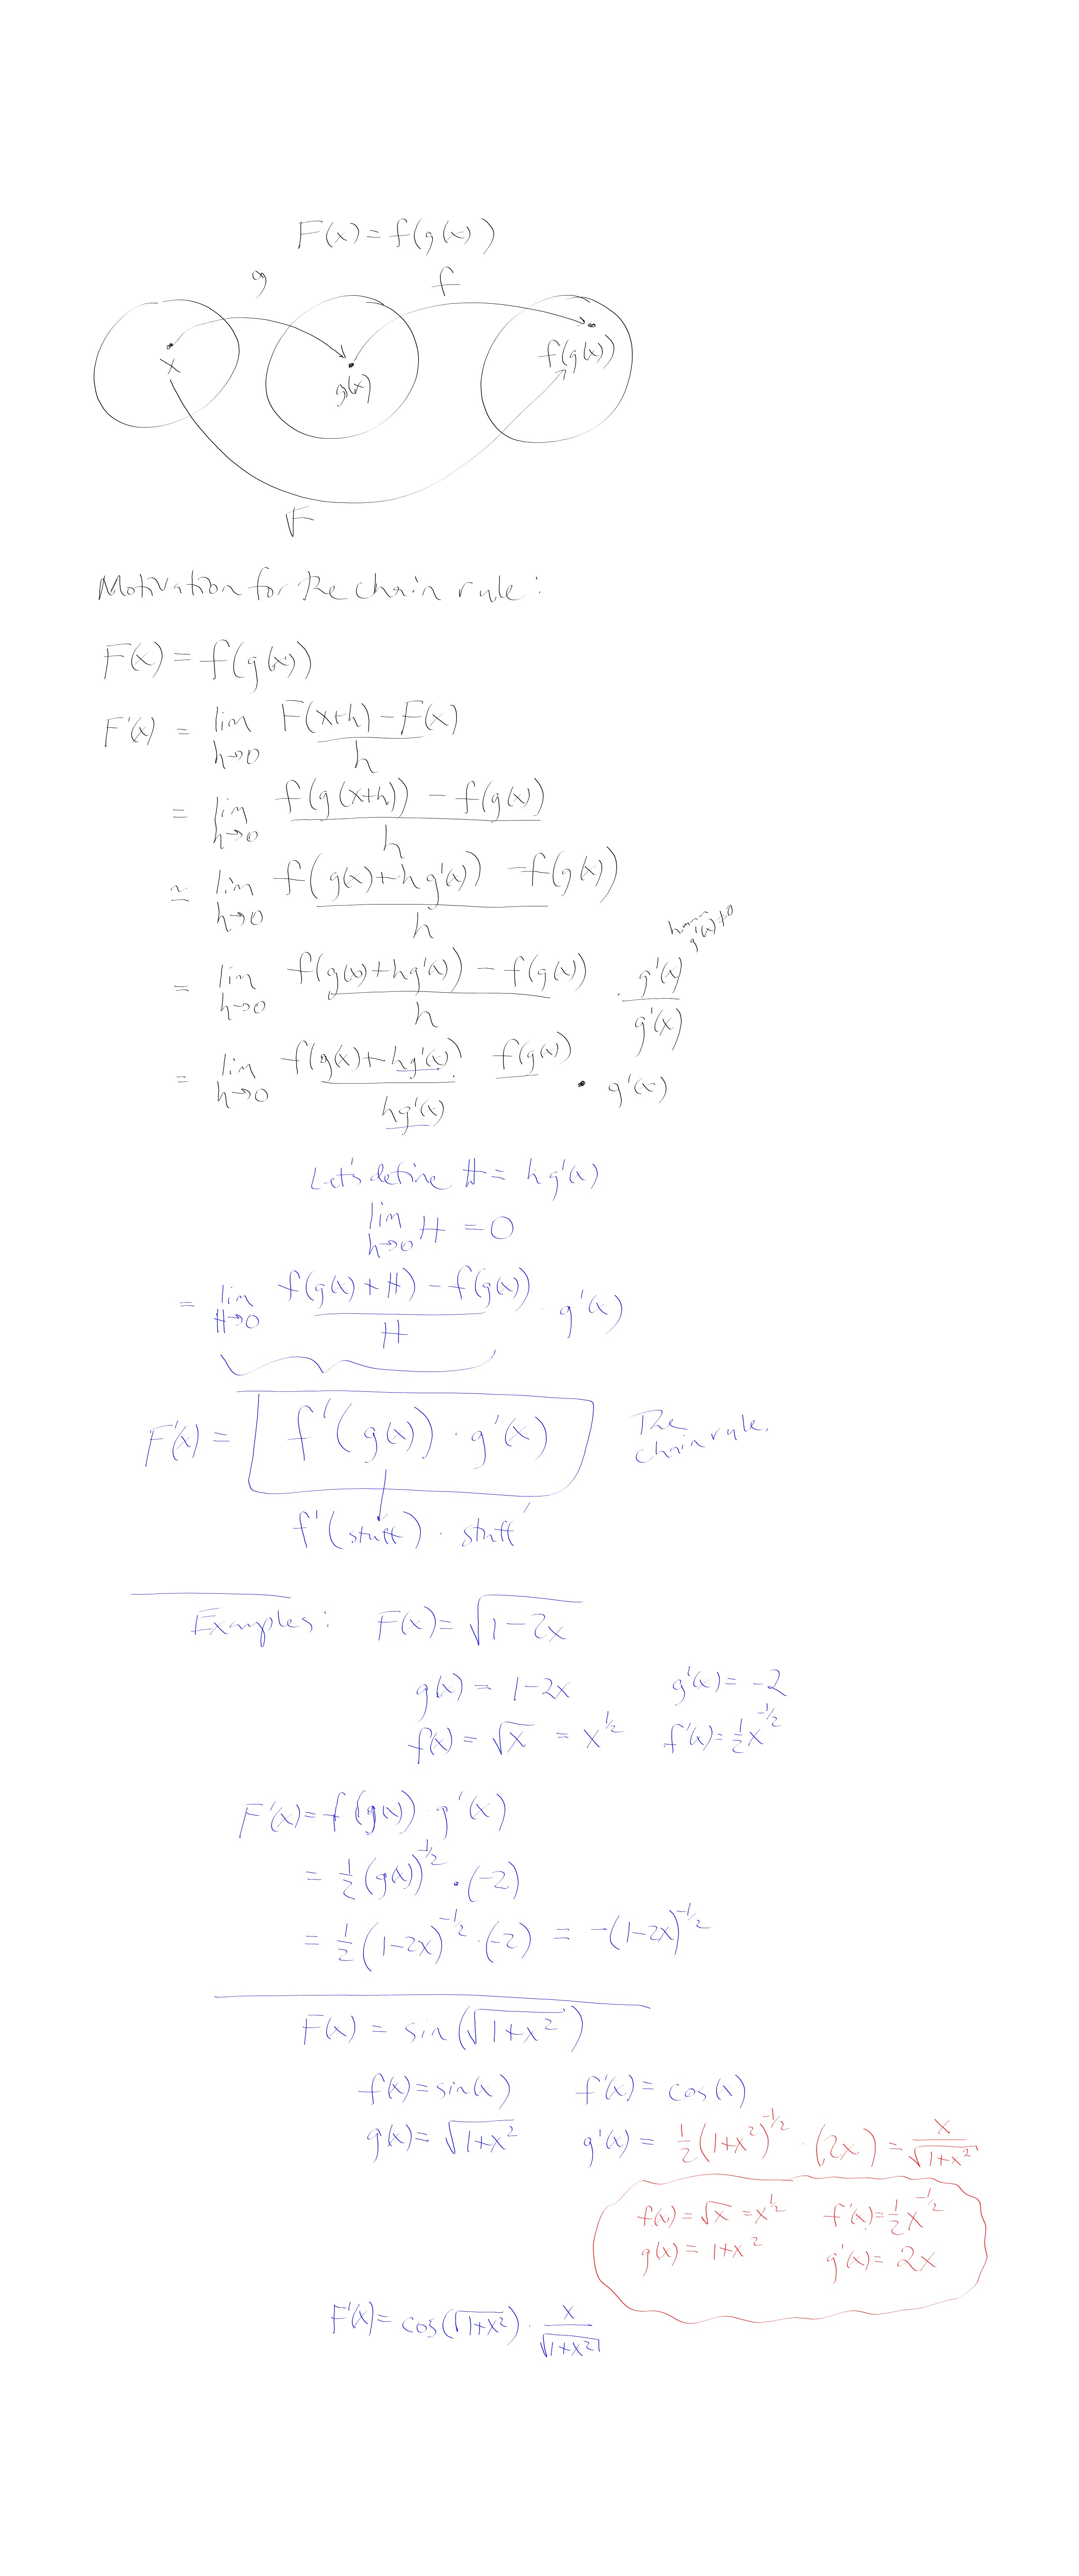 F(x) = f(g(x))
g f
x g(x) f(g(x))
F
Motivation for the chain rule:
F(x) = f(g(x))
F'(x) = lim h→0 F(x+h) - F(x) / h
= lim h→0 f(g(x+h)) - f(g(x)) / h
≃ lim h→0 f(g(x)+hg'(x)) - f(g(x)) / h
g'(x)≠0
= lim h→0 f(g(x)+hg'(x)) - f(g(x)) / h · g'(x) / g'(x)
= lim h→0 f(g(x)+hg'(x)) f(g(x)) / hg'(x) · g'(x)
Let's define H = hg'(x)
lim h→0 H = 0
= lim H→0 f(g(x)+H) - f(g(x)) / H · g'(x)
F'(x) = f'(g(x)) · g'(x) The
chain rule.
f'(stuff) · stuff'
Examples: F(x) = √(1-2x)
g(x) = 1-2x g'(x) = -2
f(x) = √x = x^1/2 f'(x) = 1/2 x^-1/2
F'(x) = f(g(x)) · g'(x)
= 1/2 (g(x))^-1/2 · (-2)
= 1/2 (1-2x)^-1/2 · (-2) = -(1-2x)^-1/2
F(x) = sin(√(1+x²))
f(x) = sin(x) f'(x) = cos(x)
g(x) = √(1+x²) g'(x) = 1/2 (1+x²)^-1/2 · (2x) = x / √(1+x²)
f(x) = √x = x^1/2 f'(x) = 1/2 x^-1/2
g(x) = 1+x² g'(x) = 2x
F'(x) = cos(√(1+x²)) · x / √(1+x²)